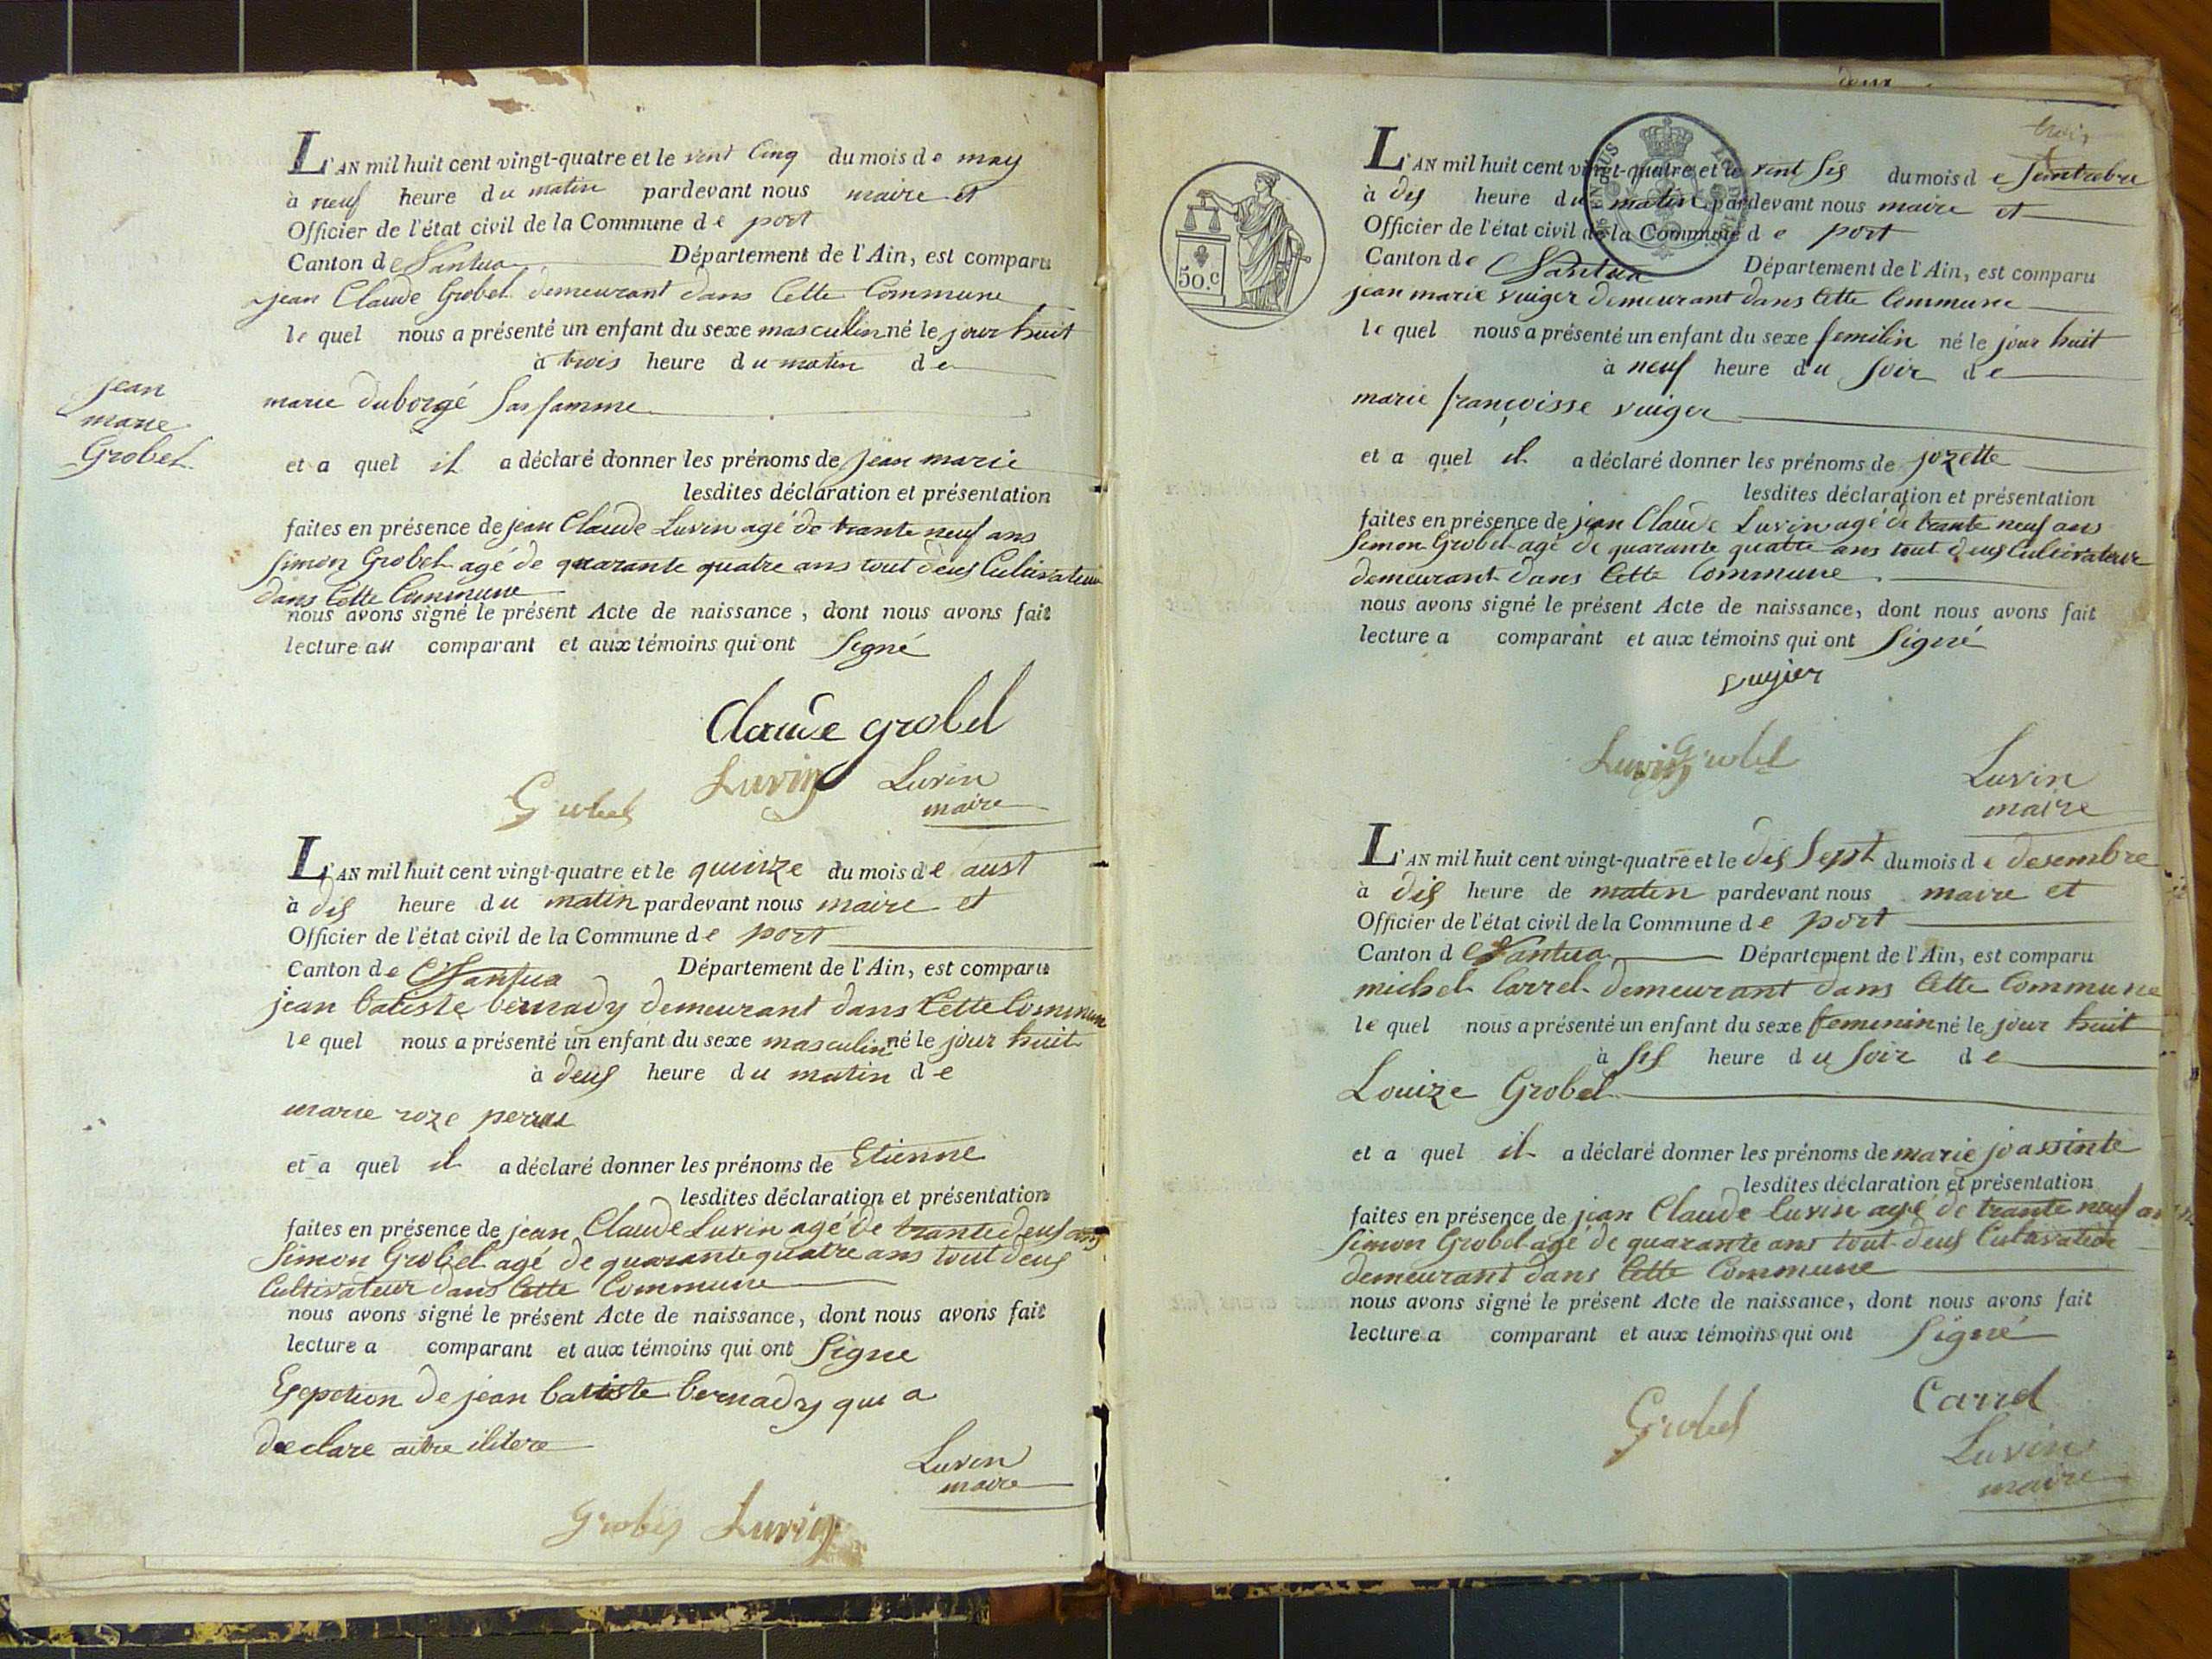 L'AN mil huit cent vingt-quatre et le vint Cinq du mois de may
à neuf heure du matin pardevant nous maire et
Officier de l'état civil de la Commune de port
Canton de Nantua Département de l'Ain, est comparu
jean Claude Grobel demeurant dans Cette Commune
le quel nous a présenté un enfant du sexe masculin né le jour huit
à trois heure du matin de
marie duborgé Sas famme
jean
marie
Grobel
et a quel il a déclaré donner les prénoms de jean marie
lesdites déclaration et présentation
faites en présence de jean Claude Luvin agé de trante neuf ans
Simon Grobel agé de quarante quatre ans tout deus Cultivateur
dans Cette Commune
nous avons signé le présent Acte de naissance, dont nous avons fait
lecture au comparant et aux témoins qui ont Signé
Claude grobel
Luvin Luvin
Grobel maire
L'AN mil huit cent vingt-quatre et le quinze du mois de aust
à dis heure du matin pardevant nous maire et
Officier de l'état civil de la Commune de port
Canton de Nantua Département de l'Ain, est comparu
jean batiste bernady demeurant dans Cette Commune
le quel nous a présenté un enfant du sexe masculin né le jour huit
à deus heure du matin de
marie roze
et a quel il a déclaré donner les prénoms de Etienne
lesdites déclaration et présentation
faites en présence de jean Claude Luvin agé de trante deus ans
Simon Grobel agé de quarante quatre ans tout deus
Cultivateur dans Cette Commune
nous avons signé le présent Acte de naissance, dont nous avons fait
lecture a comparant et aux témoins qui ont Signe
Esepction de jean batiste bernady qui a
declare aitre ilitere
Luvin
maire
Grobel Luvin
trois
50.C
L'AN mil huit cent vingt-quatre et le vint sis du mois de
à dis heure du matin pardevant nous maire et
Officier de l'état civil de la Commune de port
Canton de Nantua Département de l'Ain, est comparu
jean marie vuiger demeurant dans Cette Commune
le quel nous a présenté un enfant du sexe femilin né le jour huit
à neuf heure du Soir de
marie françoisse vuiger
et a quel il a déclaré donner les prénoms de jozette
lesdites déclaration et présentation
faites en présence de jean Claude Luvin agé de trante neuf ans
Simon Grobel agé de quarante quatre ans tout deus Cultivateur
demeurant dans Cette Commune
nous avons signé le présent Acte de naissance, dont nous avons fait
lecture a comparant et aux témoins qui ont Signé
vuyier
Luvin Grobel Luvin
maire
L'AN mil huit cent vingt-quatre et le dis Sept du mois de desembre
à dis heure de maten pardevant nous maire et
Officier de l'état civil de la Commune de port
Canton de Nantua Département de l'Ain, est comparu
michel Carrel demeurant dans Cette Commune
le quel nous a présenté un enfant du sexe femenin né le jour huit
à sis heure du Soir de
Louize Grobel
et a quel il a déclaré donner les prénoms de marie joassinte
lesdites déclaration et présentation
faites en présence de jean Claude Luvin agé de trante neuf ans
Simon Grobel agé de quarante ans tout deus Cultivateur
demeurant dans Cette Commune
nous avons signé le présent Acte de naissance, dont nous avons fait
lecture a comparant et aux témoins qui ont Signé
Grobel Carrel
Luvin
maire